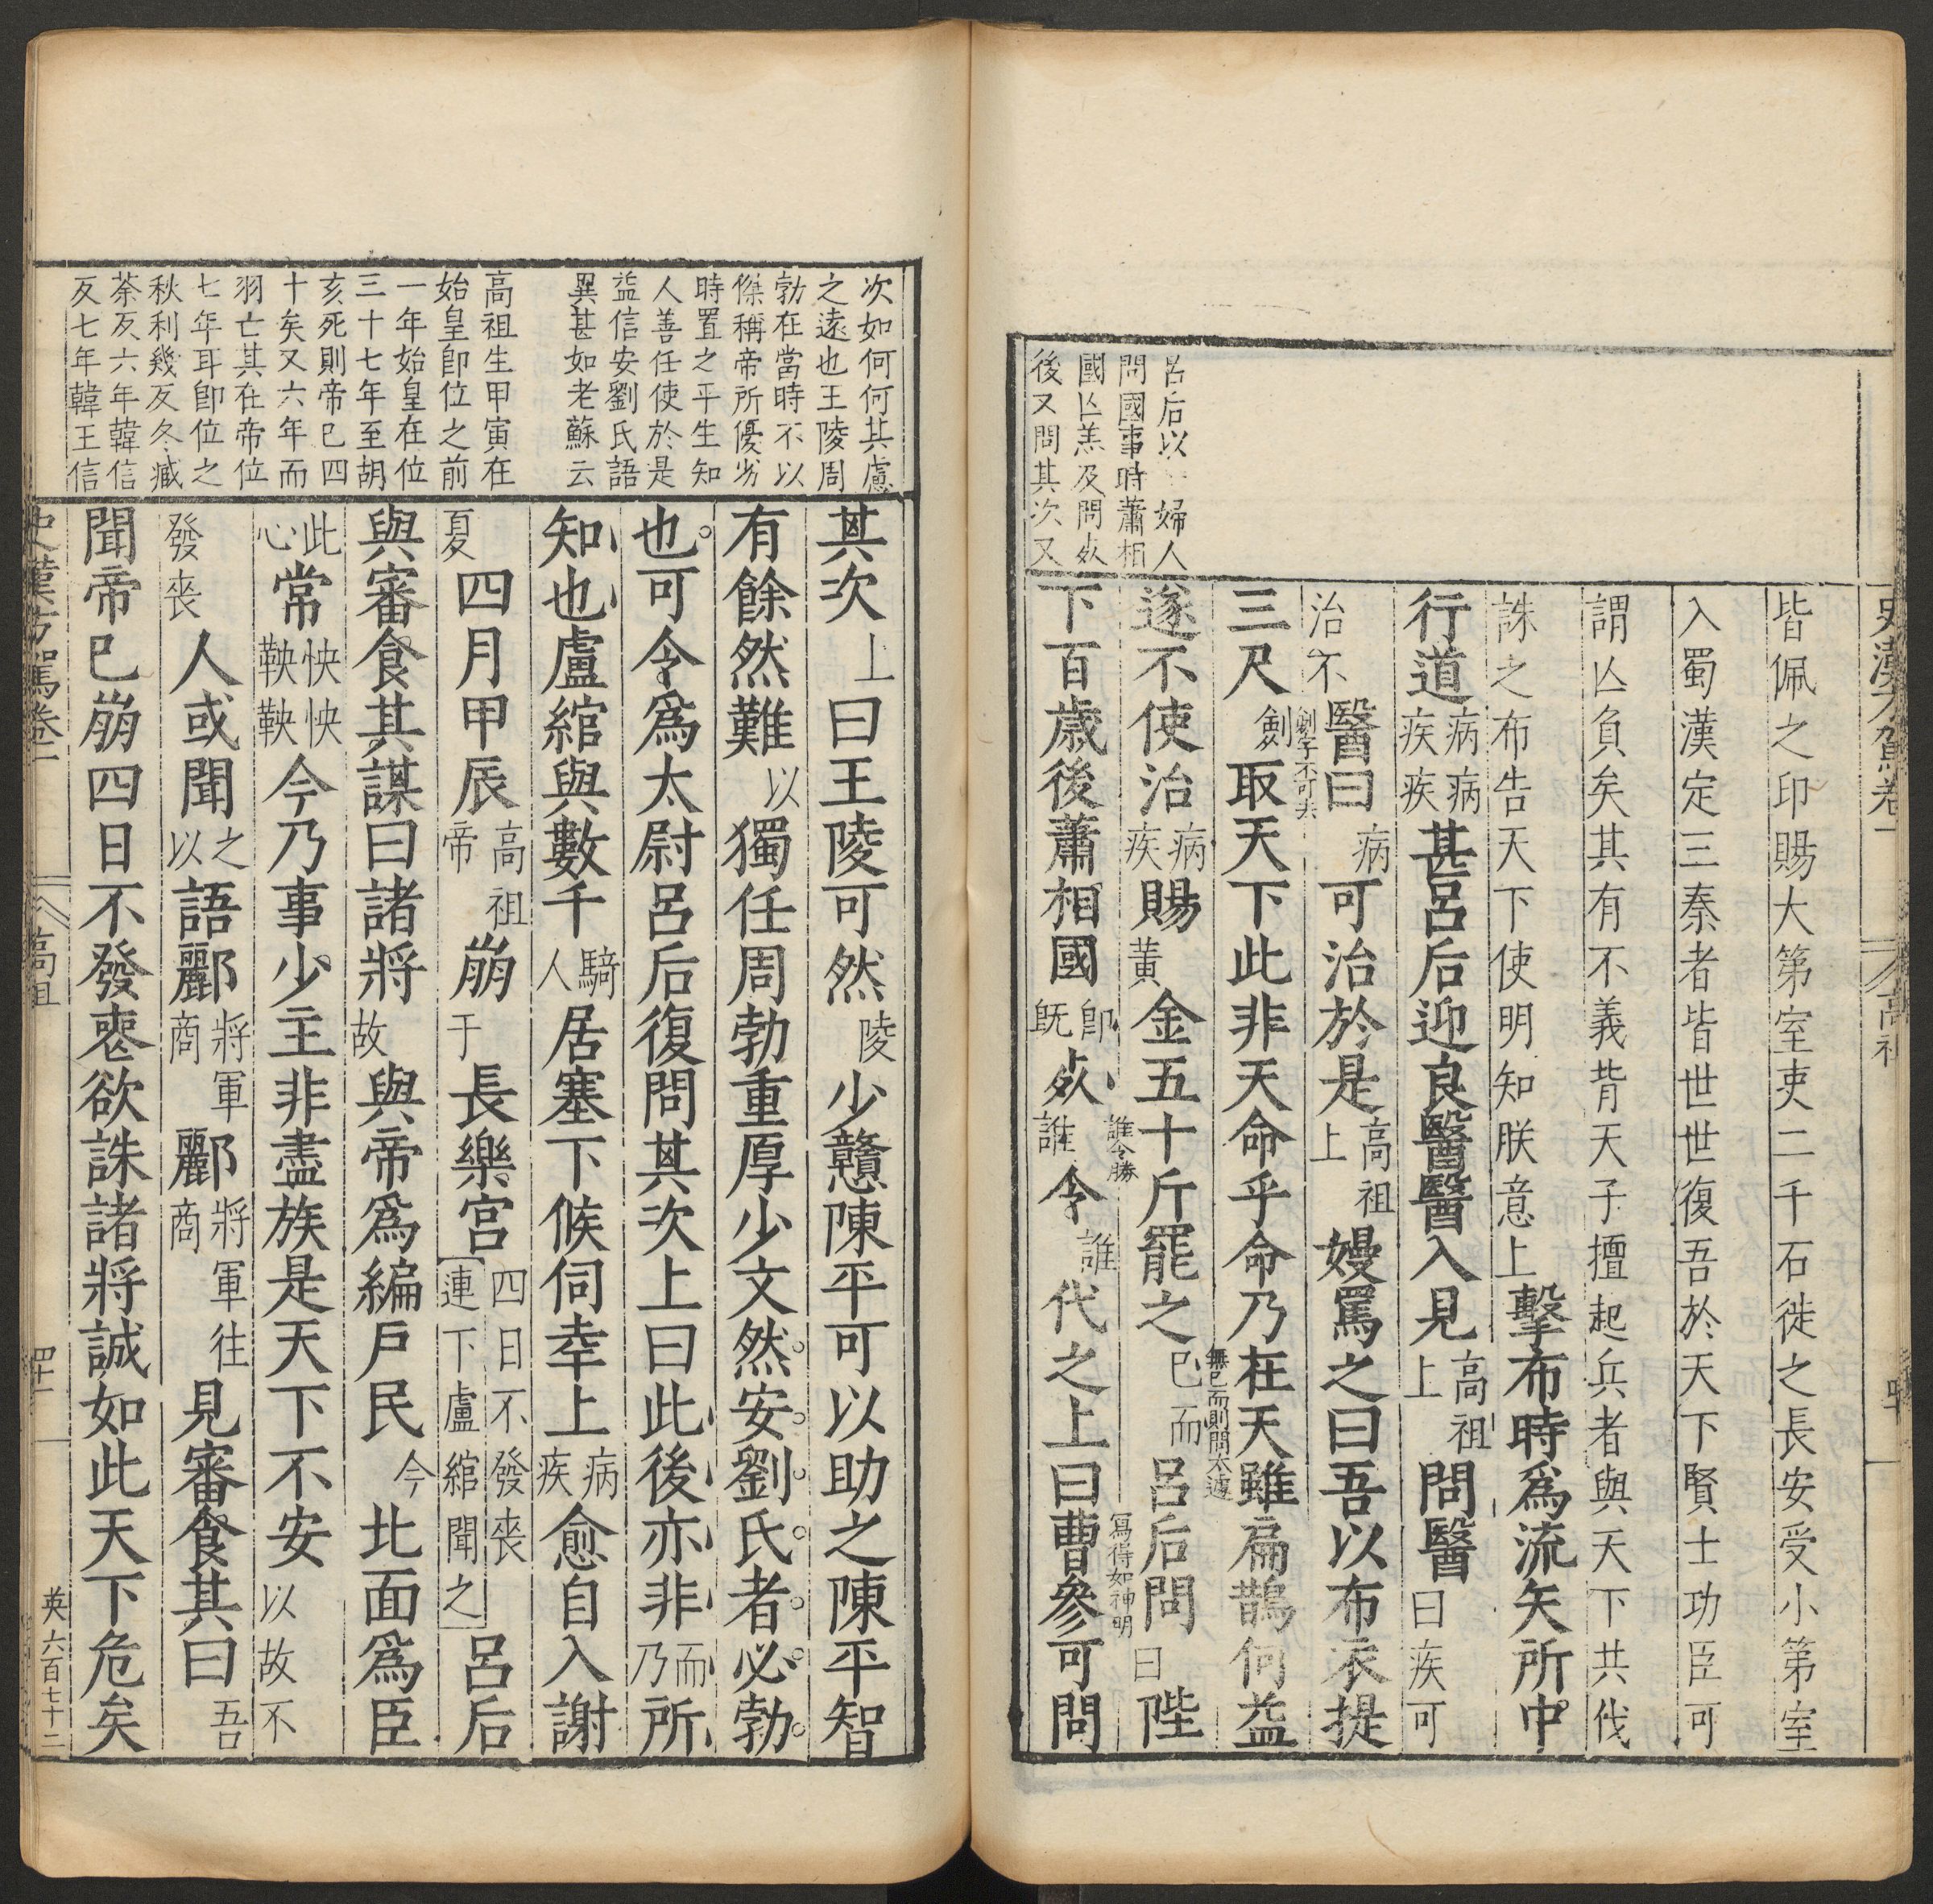 史漢方駕卷一　高祖　四十
呂后以婦人
問國事時蕭相
國亾恙及問㱙
後又問其次又
皆佩之印賜大第室吏二千石徙之長安受小第室
入蜀漢定三秦者皆世世復吾於天下賢士功臣可
謂亾負矣其有不義背天子擅起兵者與天下共伐
誅之布告天下使明知朕意上擊布時爲流矢所中
行道病病疾疾甚呂后迎良醫醫入見高祖上問醫曰疾可
治不醫曰病可治於是高祖上嫚罵之曰吾以布衣提
劍字不可去
三尺劍取天下此非天命乎命乃在天雖扁鵲何益
無已而則問太遽
遂不使治病疾賜黃金五十斤罷之已而呂后問曰陛
誰令勝
寫得如神明
下百歲後蕭相國卽旣㱙誰令誰代之上曰曹參可問
次如何何其慮
之遠也王陵周
勃在當時不以
傑稱帝所優劣
時置之平生知
人善任使於是
益信安劉氏語
異甚如老蘇云
高祖生甲寅在
始皇卽位之前
一年始皇在位
三十七年至胡
亥死則帝已四
十矣又六年而
羽亡其在帝位
七年耳卽位之
秋利幾反冬臧
荼反六年韓信
反七年韓王信
其次上曰王陵可然陵少戇陳平可以助之陳平智
有餘然難以獨任周勃重厚少文然安劉氏者必勃
也可令爲太尉呂后復問其次上曰此後亦非而乃所
知也盧綰與數千騎人居塞下候伺幸上病疾愈自入謝
夏四月甲辰高祖帝崩于長樂宮四日不發喪連下盧綰聞之呂后
與審食其謀曰諸將故與帝爲編戶民今北面爲臣
此心常怏怏鞅鞅今乃事少主非盡族是天下不安以故不
發喪人或聞之以語酈將軍商酈將軍商往見審食其曰吾
聞帝已崩四日不發喪欲誅諸將誠如此天下危矣
史漢方駕卷一　高祖　四十一　英六百七十二